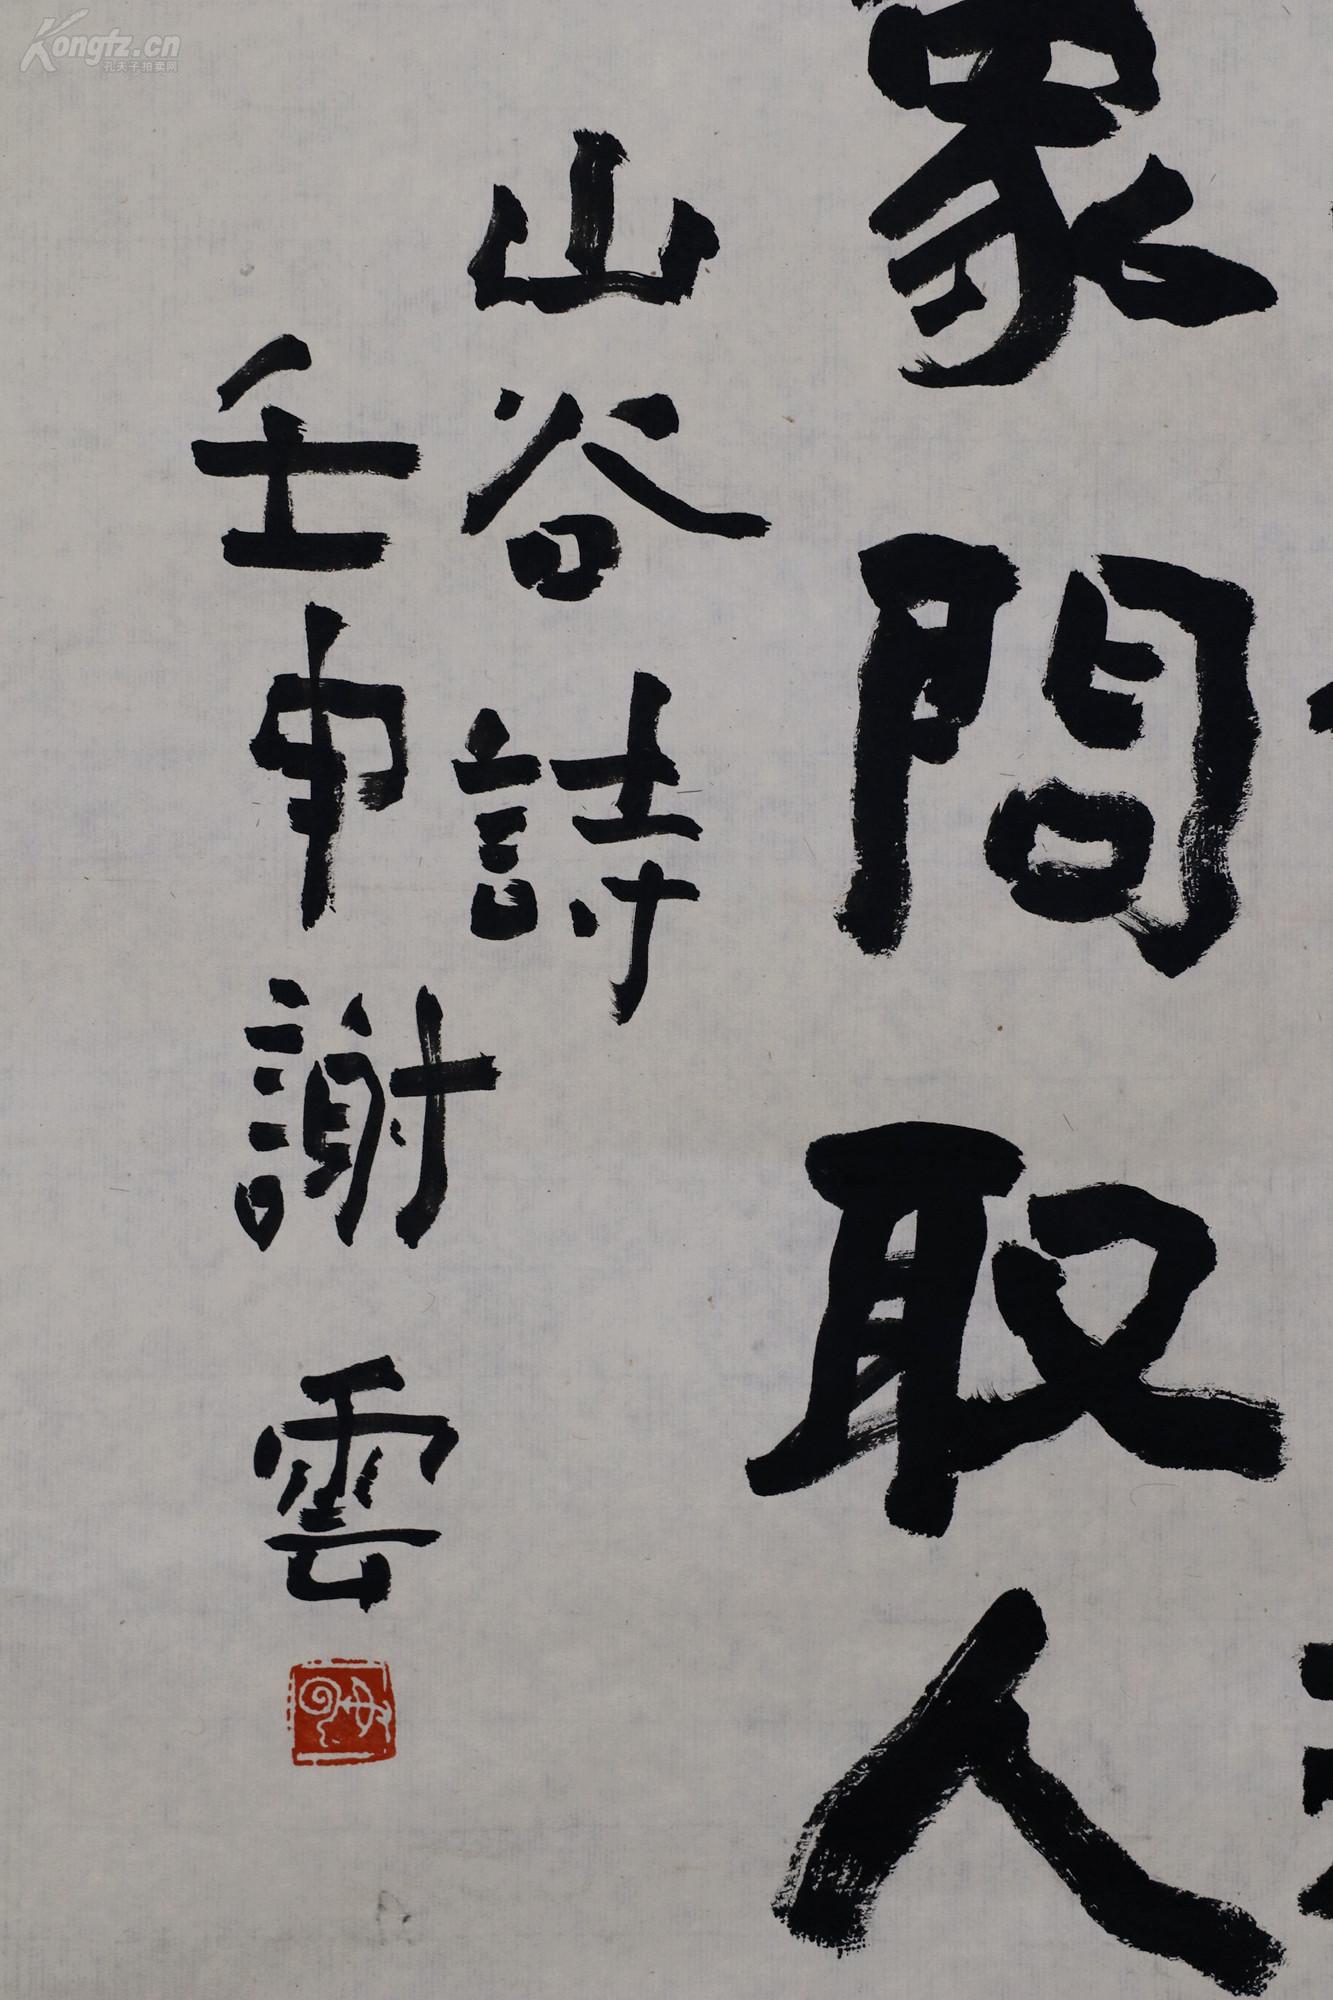 問取人
山谷詩
壬申謝雲
Kongfz.cn
孔夫子拍卖网